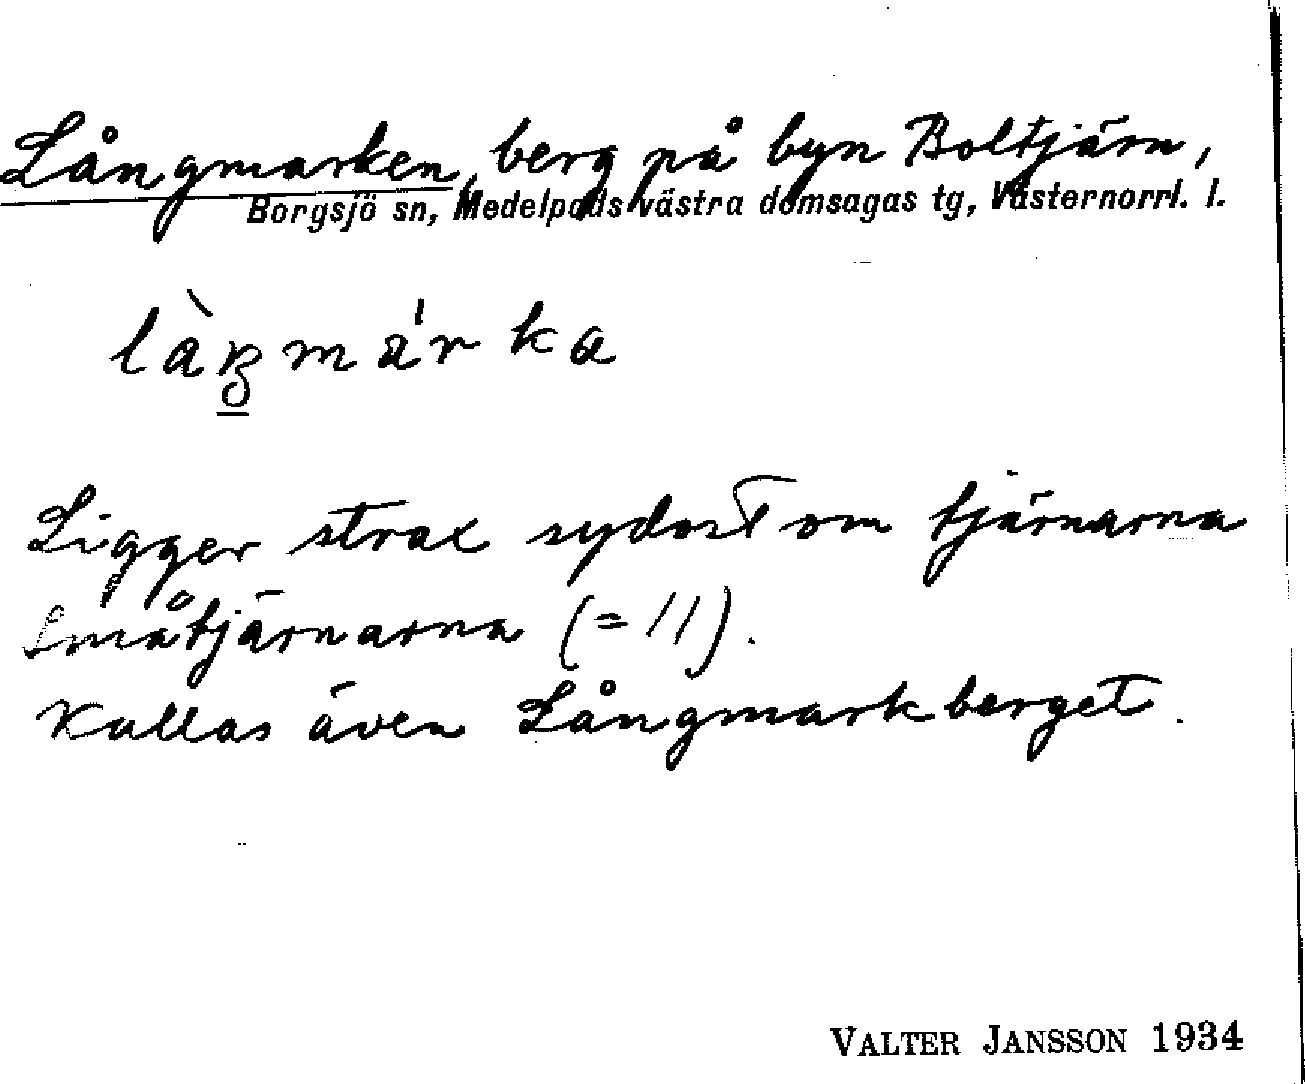 Långmarken, berg på byn Boltjärn,
Borgsjö sn, Medelpads västra domsagas tg, Västernorrl. l.
Ligger strax sydost om tjärnarna
Småtjärnarna (= 11).
Kallas även Långmarkberget.
VALTER JANSSON 1934